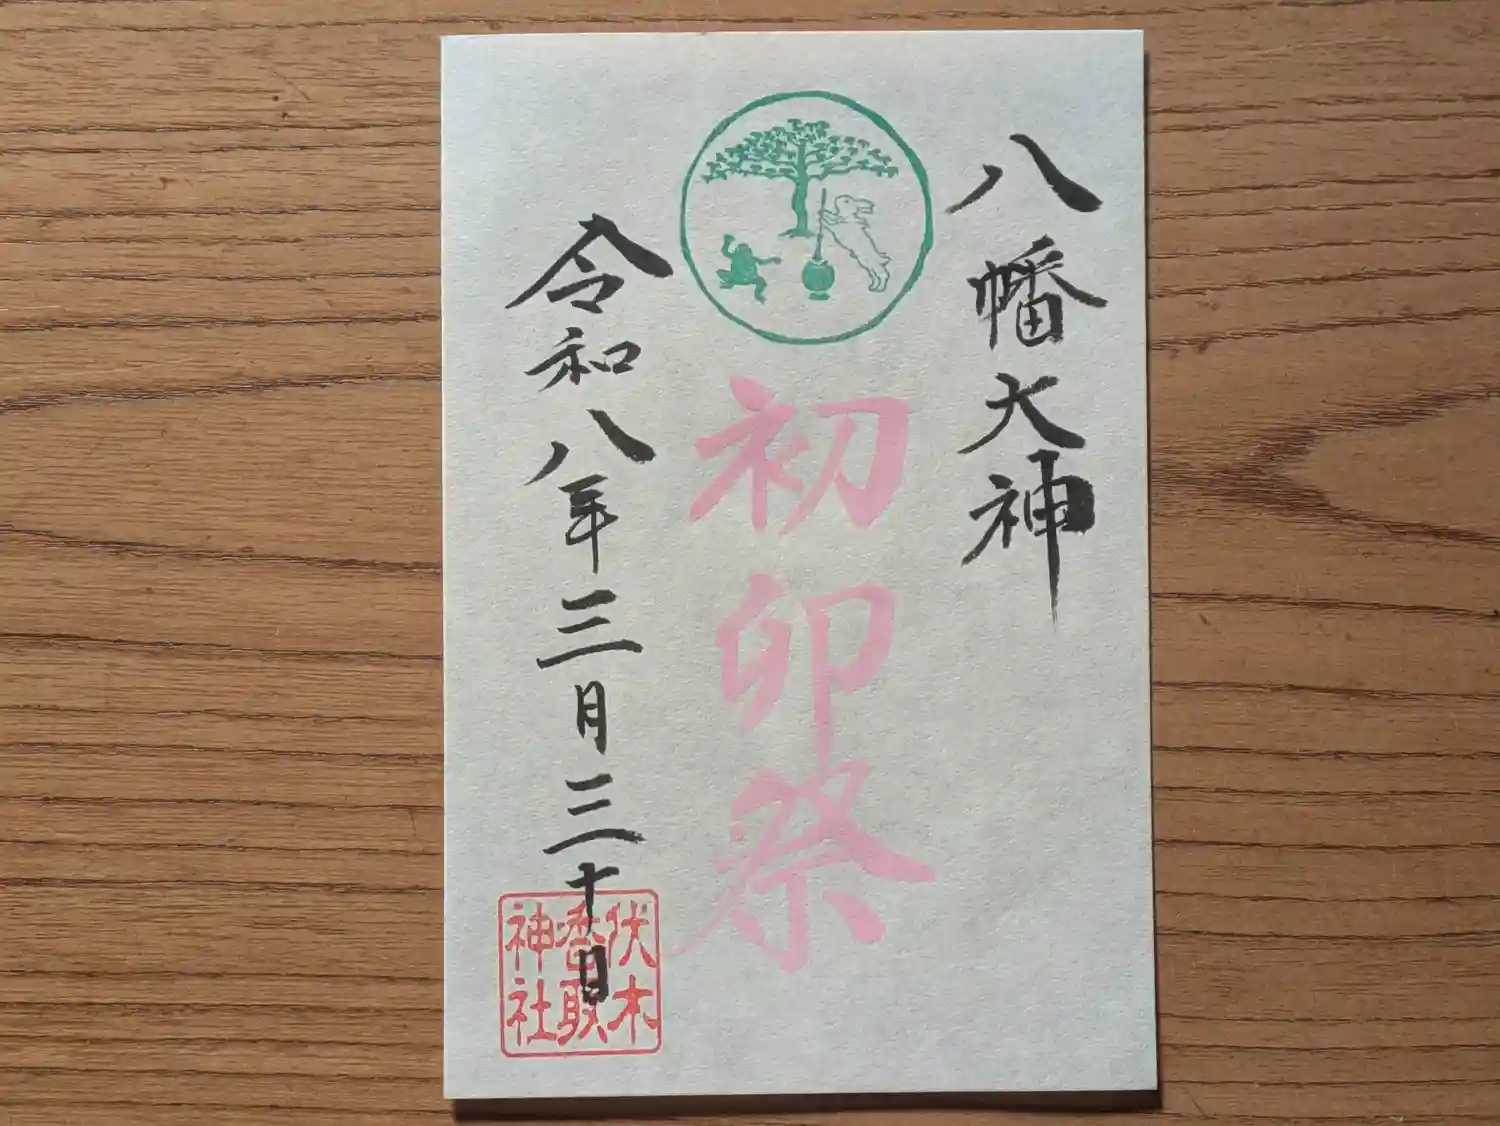 八幡大神
初卯祭
令和八年三月三十日
伏木
香取
神社